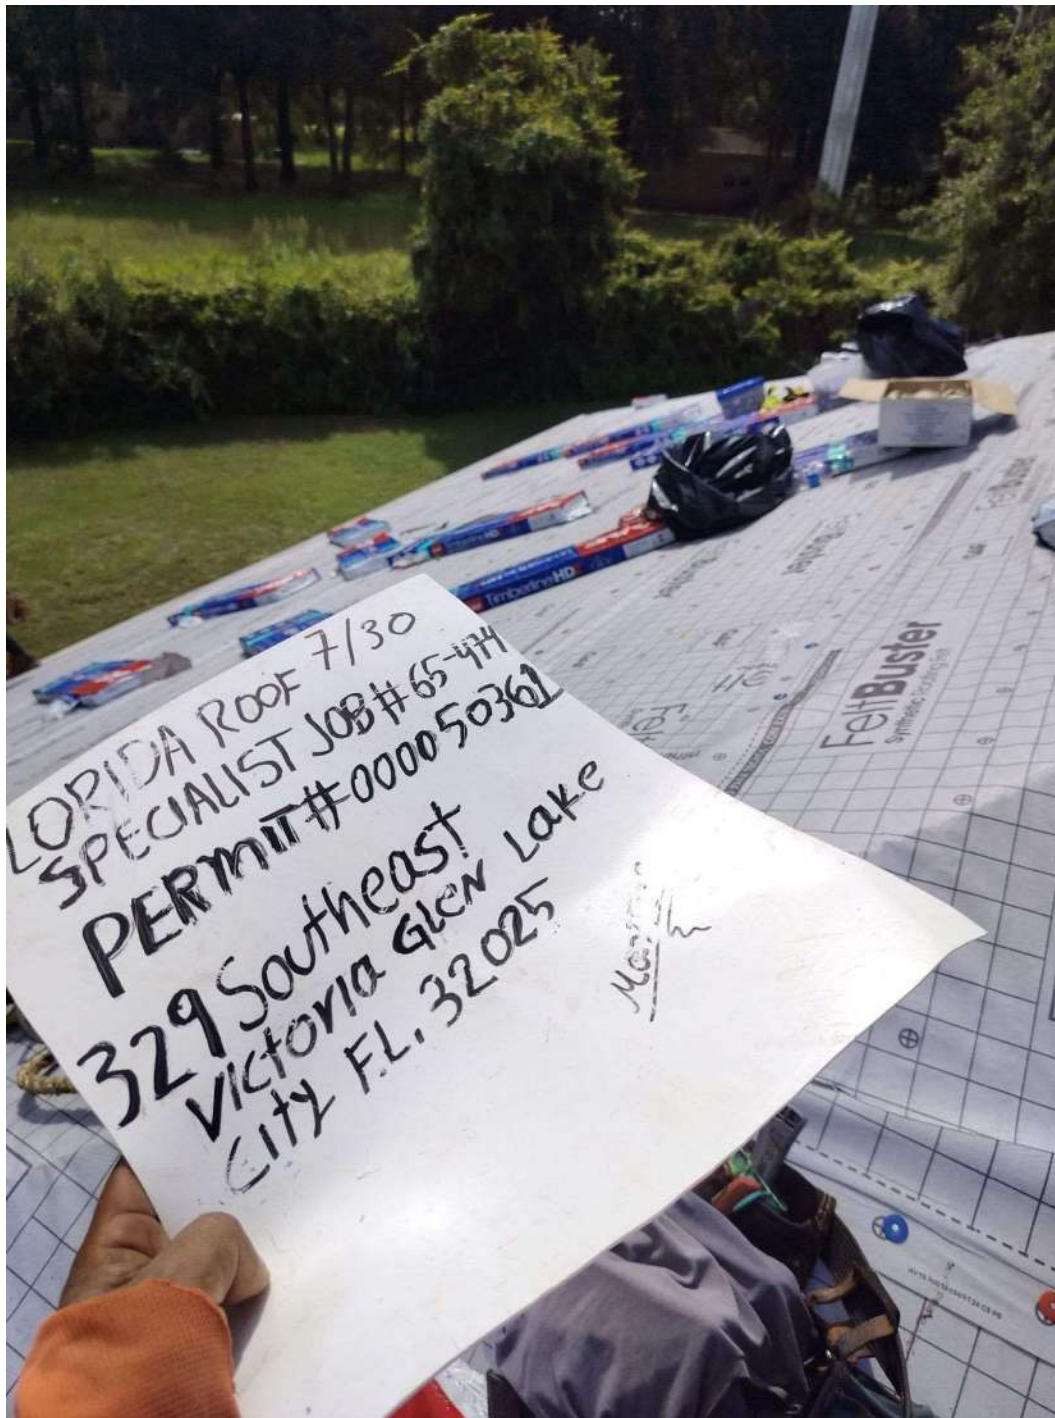 7/30
LORIDA ROOF
SPECIALIST JOB # 65-474
PERMIT # 000050361
329 Southeast
Victoria Glen Lake
City FL. 32025
TimberlineHD
FeltBuster
Synthetic Roofing Felt
FeltBuster